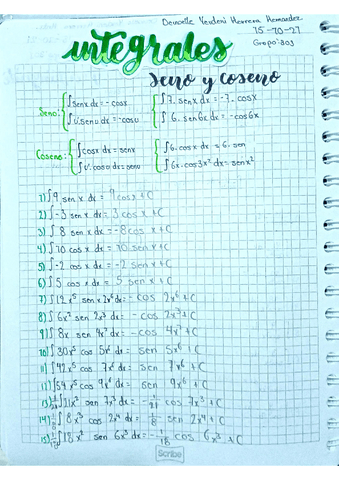 Herrera Hernandez
15-10-21
Grupo: 303
integrales
Seno y coseno
Seno: ∫senx dx = -cosx ∫7. senx dx = -7. cosx
∫u'.senu dx = -cosu ∫6. sen6x dx = -cos6x
Coseno: ∫cosx dx = senx ∫6.cosx dx = 6. sen
∫u'.cosu dx = senu ∫6x.cos3x² dx = senx²
1) ∫9 senx dx = 9cosx+C
2) ∫-3 senx dx = 3 cosx+C
3) ∫8 senx dx = -8cosx+C
4) ∫10 cosx dx = 10 senx+C
5) ∫-2 cosx dx = -2 senx+C
6) ∫5 cosx dx = 5 senx+C
7) ∫12x⁵ senx2x⁶dx = -cos 2x⁶+C
8) ∫6x² sen 2x³ dx = -cos 2x³+C
9) ∫8x sen 4x² dx = -cos 4x²+C
10) ∫30x⁵ cos 5x⁶ dx = sen 5x⁶+C
11) ∫42x⁵ cos 7x⁶ dx = sen 7x⁶+C
12) ∫54x⁵ cos 9x⁶ dx = sen 9x⁶+C
13) ∫21x² sen 7x³ dx = -1/21 cos 7x³+C
14) 1/8 ∫8x³ cos 2x⁴ dx = 1/8 sen 2x⁴+C
15) 1/18 ∫18x² sen 6x³ dx = -1/18 cos 6x³+C
Scribe